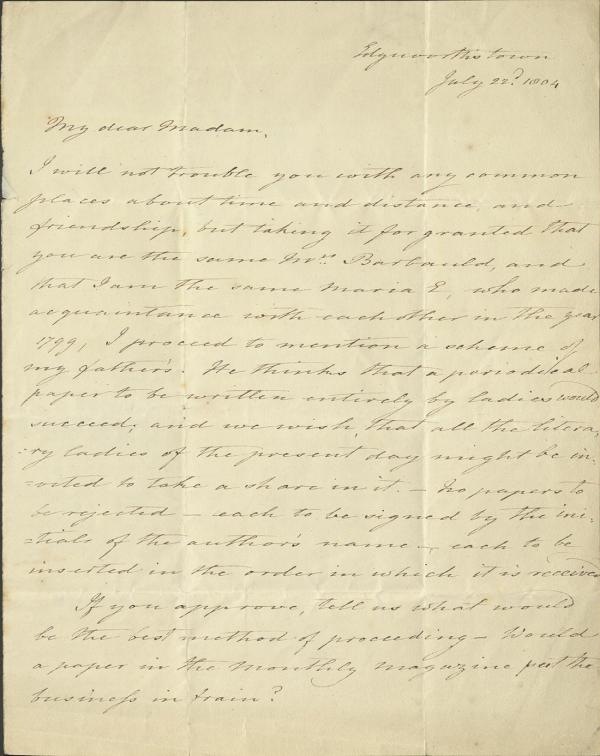 Edgworthstown
July 22d. 1804
My dear Madam,
I will not trouble you with any common
places about time and distance, and
friendship, but taking it for granted that
you are the same Mrs. Barbauld, and
that I am the same Maria E, who made
acquaintance with each other in the year
1799, I proceed to mention a scheme of
my father's. He thinks that a periodical
paper to be written entirely by ladies would
succeed, and we wish that all the litera,
-ry ladies of the present day might be in,
=vited to take a share in it. – No papers to
be rejected – each to be signed by the ini=
=tials of the author's name – each to be
inserted in the order in which it is received
If you approve, tell us what would
be the best method of proceeding – Would
a paper in the Monthly magazine put the
business in train?